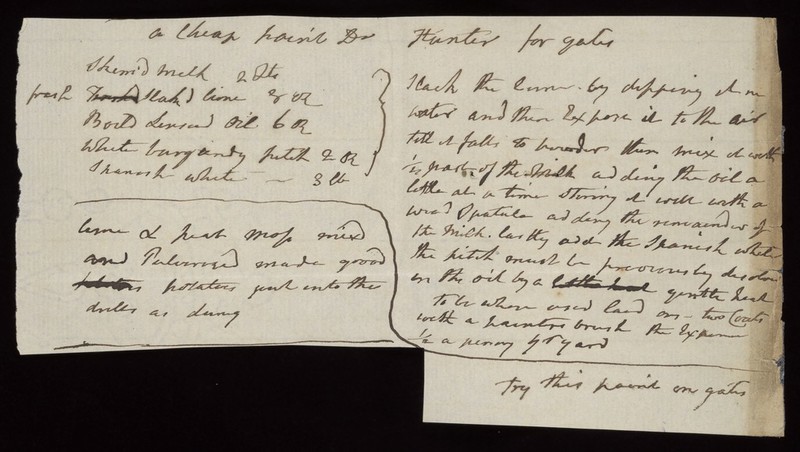 a cheap paint Dr Hunter for gates
Skim'd milk 2 Qts
fresh slak'd lime 8 oz
Boild Linseed Oil 6 oz
White burgandy pitch 2 oz
Spanish white — 3 lb
Slack the lime by dipping it in
water and then Expose it to the air
till it falls to powder then mix it with
part of the Milk adding the oil a
little at a time Stiring it well with a
wood Spatula adding the remainder of
the Milk. lastly add the Spanish white
the pitch must be previously desolved
in the oil by a gentle heat
to be when used laid on - two Coats
with a painters brush the Expence
1/2 a penny pr yard
lime & peat moss mixd
and Pulverised made good
potatoes put into the
drills as dung
try this paint on gates